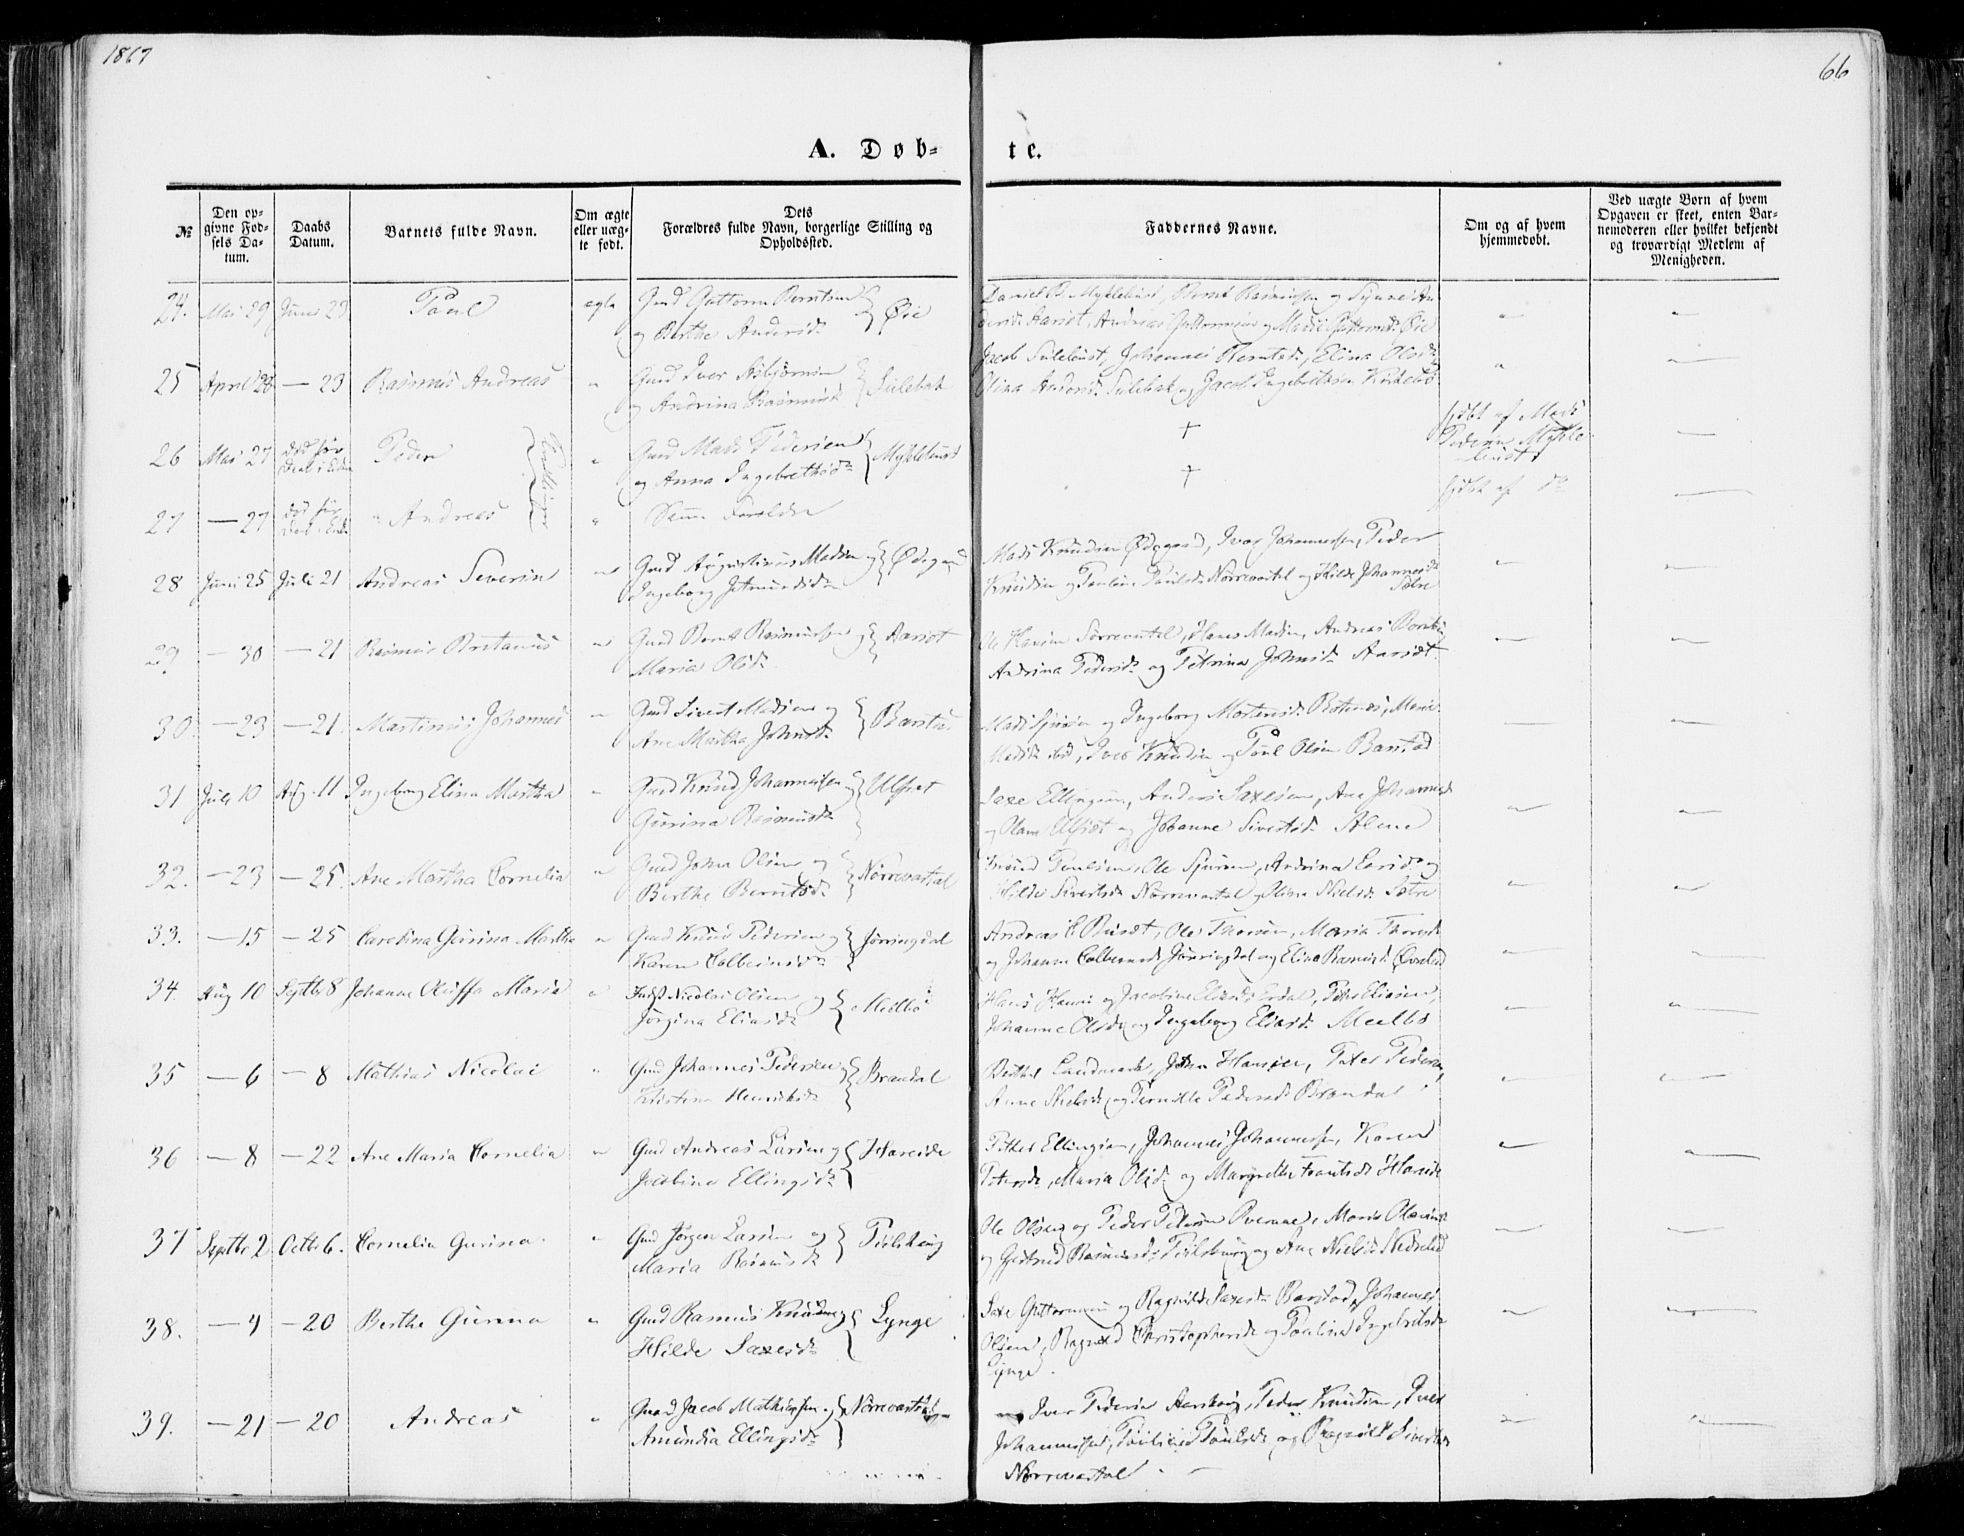 1867
66
A. Døb-
te.
№
Den op-
givne Fød-
sels Da-
tum.
Daabs
Datum.
Barnets fulde Navn.
Om ægte
eller uæg-
te født.
Dets
Forældres fulde Navn, borgerlige Stilling og
Opholdssted.
Faddernes Navne.
Om og af hvem
hjemmedøbt.
Ved uægte Børn af hvem
Opgaven er skeet, enten Bar-
nemoderen eller hvilket bekjendt
og troværdigt Medlem af
Menigheden.
24. Mai 29 Juni 23 Paul ægte Gmd Guttorm Berntsen
og Berthe Andersd. Øie
Daniel B. Myklebust, Bernt Rasmussen og Synne An
dersd. Hariot, Andreas Guttormsen og Guttormsd. Øie
25 April 28 — 23 Rasmus Andreas " Gmd Iver Asbjørnsen
og Andrina Rasmusd. Sulebak
Jacob Sulebust, Johannes Berntsd., Elina Olsd.
Olina Andersd. Sulebak og Jacob Ingebrigtsen
26 Mai 27 død før Peder " Gmd Mads Pedersen
og Anna Ingebrethsd. Myklebust
+
hjdbt af Mads
Pedersen Mykle-
bust
27 — 27 død før Andreas " Samme Forældre
+
hjdbt af do
28 Juni 25 Juli 21 Andreas Severin " Gmd Augustinus Madsen og
Ingeborg Ødegaard
Mads Knudsen Ødegaard, Ivar Johannessen, Peder
Knudsen og Pauline Paulsd. Nørrevartal og Hilde Johannesd.
Sætre
29 — 30 — 21 Rasmus Bretanus " Gmd Bernt Rasmussen og
Maria Olsd. Aariot
Ole Hansen Sørrevartal, Hans Madsen, Andreas
Andrina Pedersd. og Petrina Johnsd. Aarsæt
30 — 23 — 21. Martinus Johannes " Gmd Sivert Madsen og
Ane Martha Johnsd. Barstad
Mads Sjursen og Ingeborg Mortensd. Botnes, Marie
Madsd. ibid, Iver Knudsen og Poul Olsen Barstad
31 Juli 10 Aug. 11 Ingeborg Elina Martha " Gmd Knud Johannessen og
Gurina Rasmusd. Ulfset
Saxe Ellingsen, Anders Saxesen, Ane Johannesd.
og Olave Ulfset og Johanne Sivertsd. Alme
32. — 23 — 25. Ane Martha Cornelia " Gmd John Olsen og
Berthe Berntsd. Nørrevartal
Knud Poulsen, Ole Sjursen, Andrina Larsd. og
Hilde Sivertsd. Nørrevartal og Oline Nielsd. Sætre
33. — 15 — 25 Carolina Gurina Martha " Gmd Knud Pedersen og
Karen Colbeinsd. Jørringdal
Andreas E. Buset, Ole Thorsen, Maria Thorsd.
og Johanne Colbeinsd. Jørringdal og Eline Rasmusd. Øvrelid
34. Aug 10 Septbr 8 Johanne Oluffa Maria " Indst Nicolai Olsen og
Jørgina Eliasd. Melbø
Hans Hansen og Jacobine Eliasd. Erdal, Peter Eliasen,
Johanne Olsd. og Ingeborg Eliasd. Meelbø
35 — 6 — 8 Mathias Nicolai " Gmd Johannes Pedersen og
Kristine Henriksd. Brandal
Berthel Landmark, John Hansen, Peter Pedersen,
Anne og Pernille Pedersd. Brandal
36 — 8 — 22 Ane Maria Cornelia " Gmd Andreas Larsen og
Jacobine Ellingsd. Hareide
Petter Ellingsen, Johannes Johannessen, Karen
Petersd., Maria Olsd. og Margrethe Frantsd. Hareide
37 Septbr 2 Octbr 6. Cornelia Gurina " Gmd Jørgen Larsen og
Maria Rasmusd. Pilskoug
Ole Olsen og Peder Pedersen Overaae, Maria
og Gjertrud Rasmusd. Pilskoug og Ane Nielsd. Nedrelid
38. — 4 — 20 Berthe Gurina " Gmd Rasmus Knudsen og
Hilde Saxesd. Lynge
Saxe Guttormsen og Ragnilde Saxesd. Barstad, Johannes
Olsen, Ragnild Christophersd. og Pauline Ingebrigtsd.
Lynge.
39. — 21 — 20 Andreas " Gmd Jacob Mathiassen og
Amundia Ellingsd. Nørrevartal
Iver Pedersen Aarskog, Peder Knudsen, Iver
Johannessen, Pauline Paulsd. og Ragnild Sivertsd.
Nørrevartal